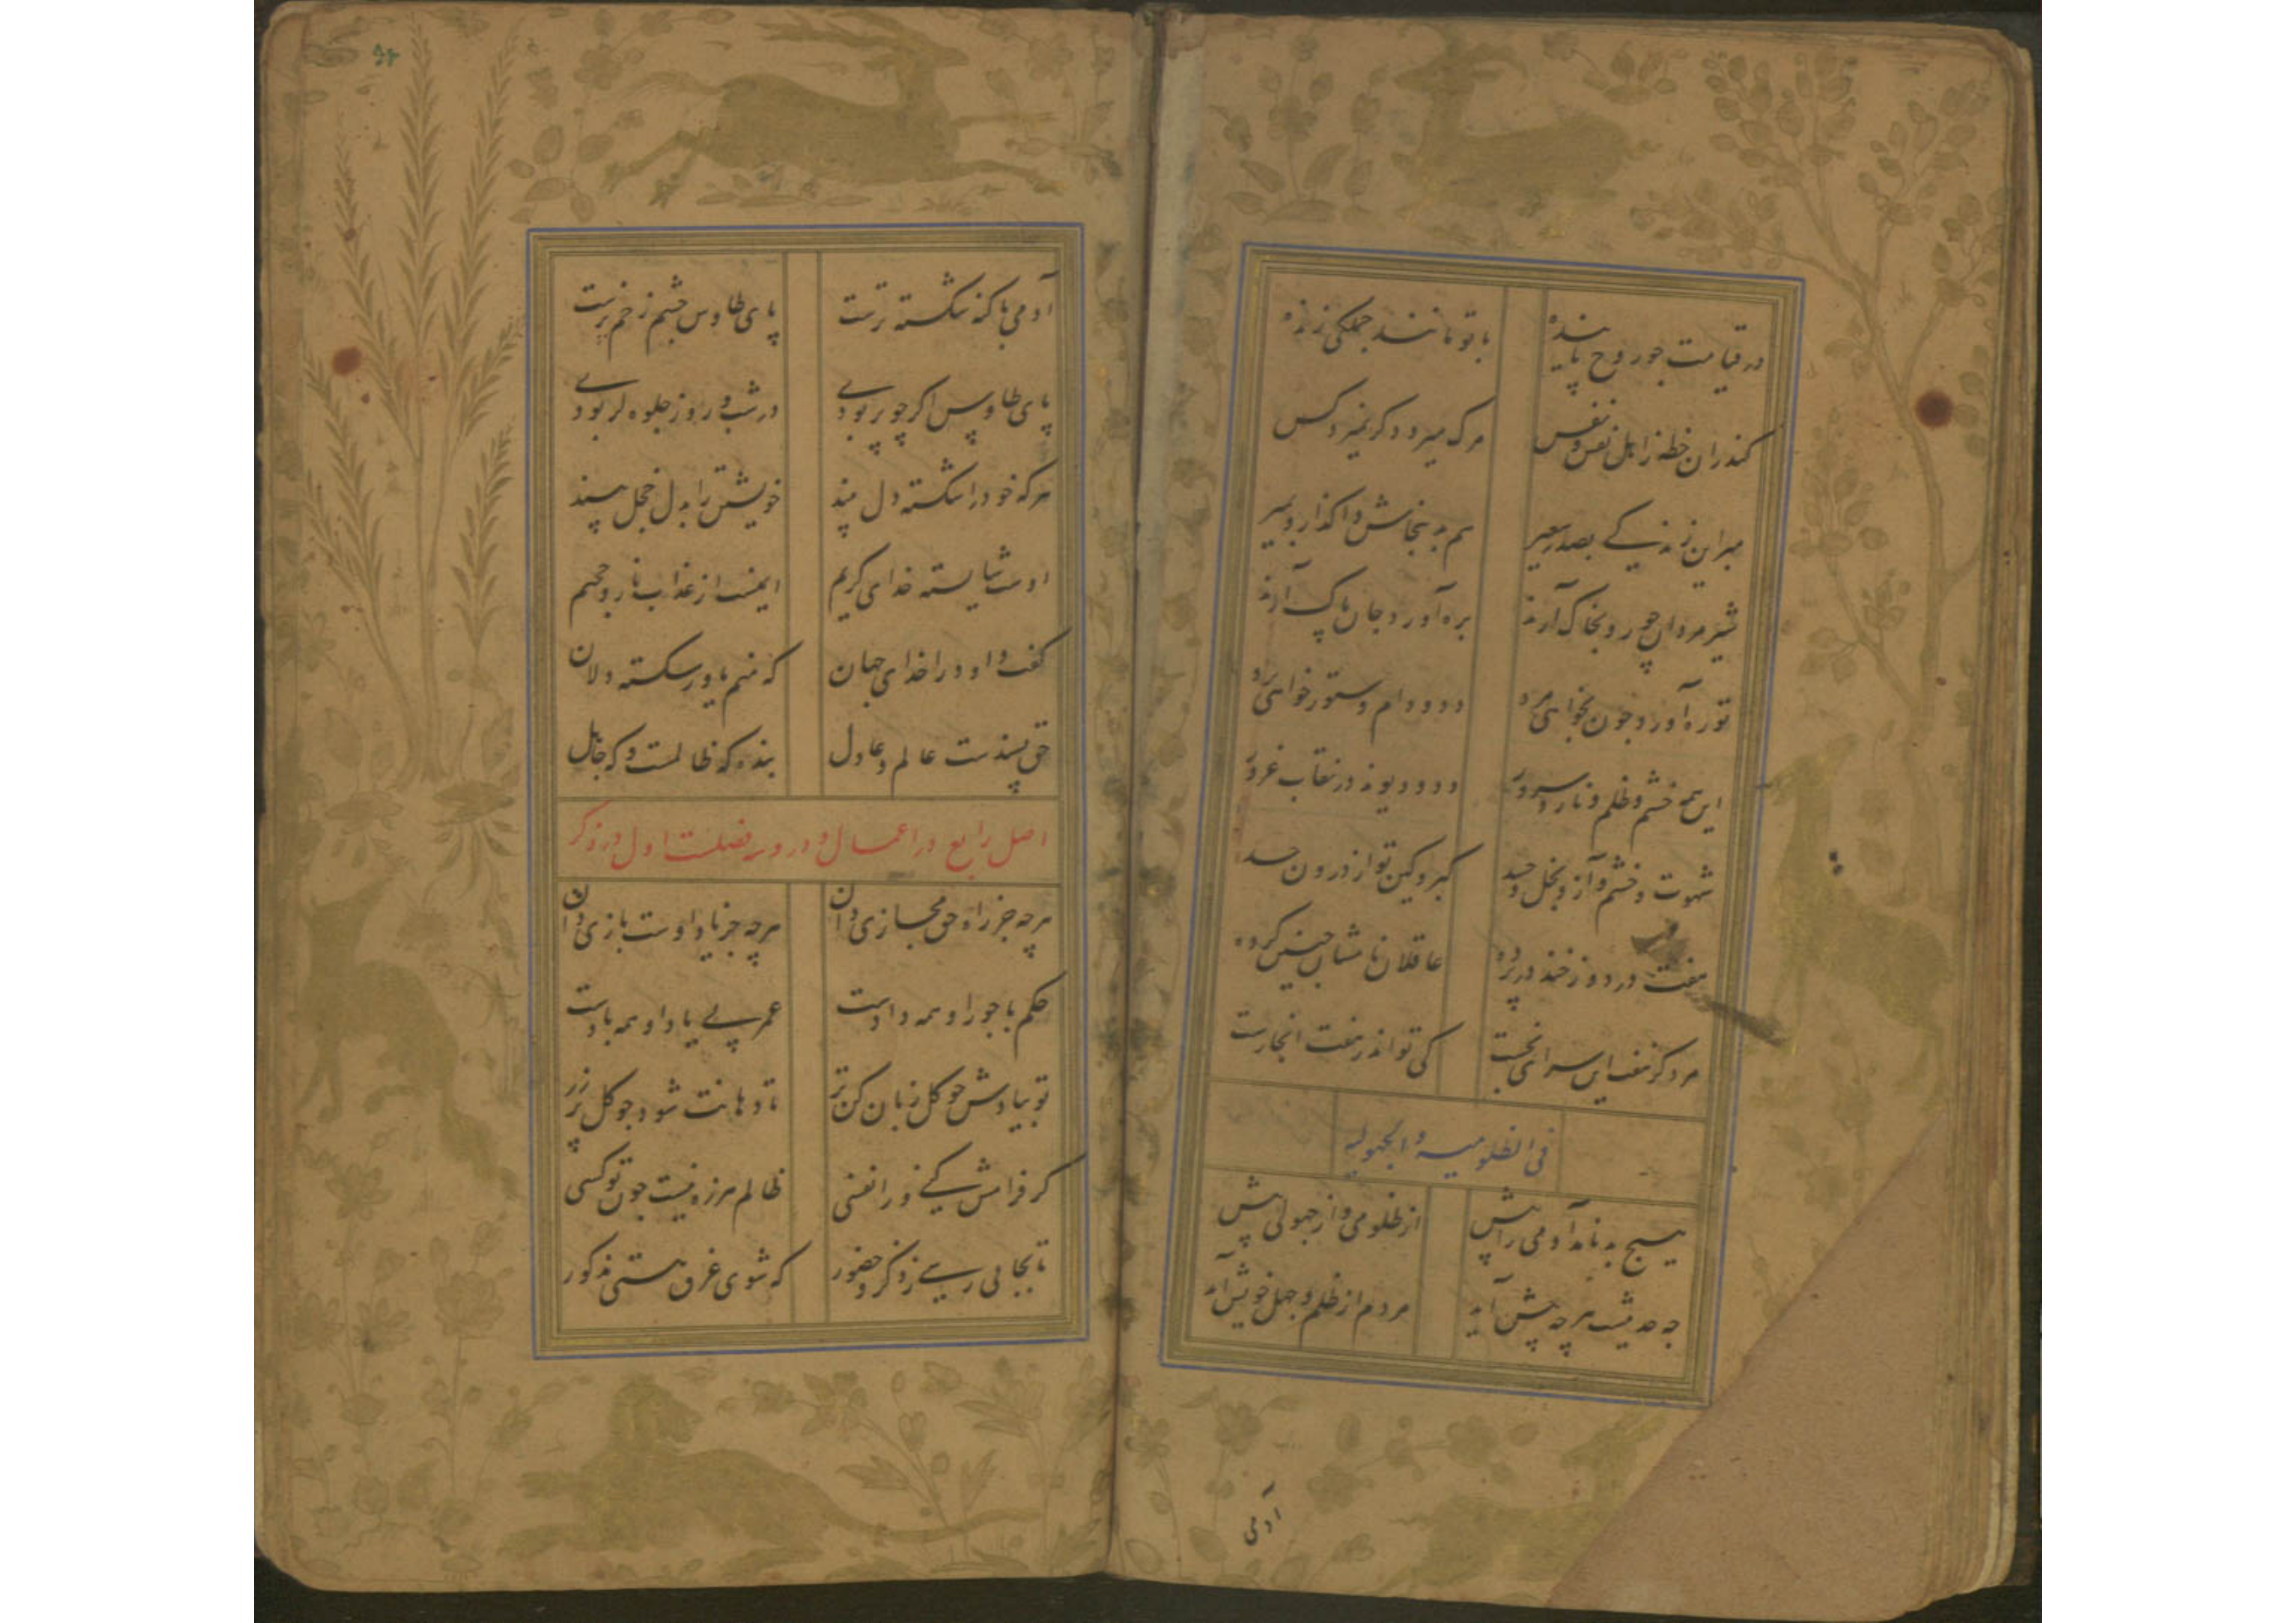 در قیامت چو روح پاینده با تو مانند جملگی زنده
کندران خطه ز اهل نفس و نفس مرک میرد دکر نمیرد کس
مبر این زندکی بصدر سعیر هم بدینجاش واکذار و بمیر
شیر مردان چو رو بخاک آرند ره آورد جان پاک آرند
تو ره آورد چون بخواهی مرد دد و دام و ستور خواهی برد
این همه خشم و ظلم و نار و سرور دد و دیوند در نقاب غرور
شهوت و خشم و آز و بخل و حسد کبر و کین تو از درون جسد
هفت در دوزخند در پرده عاقلان نامشان چنین کرده
مرد کز هفت این سرای نجست کی تواند ز هفت انجا رست
فی الظلومیه و الجهولیه
هیچ بد نامد آدمی را پیش از ظلومی و از جهولی بیش
چه حدیثست هر چه پیش آید مردم از ظلم و جهل خویش آید
آدمی
۵۴
آدمی با کنه شکسته ترست پای طاوس چشم زخم پرست
پای طاوس اکر چو پر بودی در شب و روز جلوه کر بودی
هر که خود را شکسته دل بیند خویشتن را بدل خجل بیند
اوست شایسته خدای کریم ایمنست از عذاب نار و جحیم
کفت داود را خدای جهان که منم یاور شکسته دلان
حق پسندست عالم و عادل بنده که ظالمست و که جاهل
اصل رابع در اعمال و در وی فضلست اول در ذکر
هر چه جز راه حق مجازی دان هر چه جز یاد اوست بازی دان
حکم با جور او همه دادست عمر بی یاد او همه بادست
تو بیادش چو کل زبان کن تر تا دهانت شود چو کل پر زر
کر فرامش کنی ورا نفسی ظالم هرزه نیست چون تو کسی
تا بجایی رسی ز ذکر و حضور که شوی غرق هستی مذکور